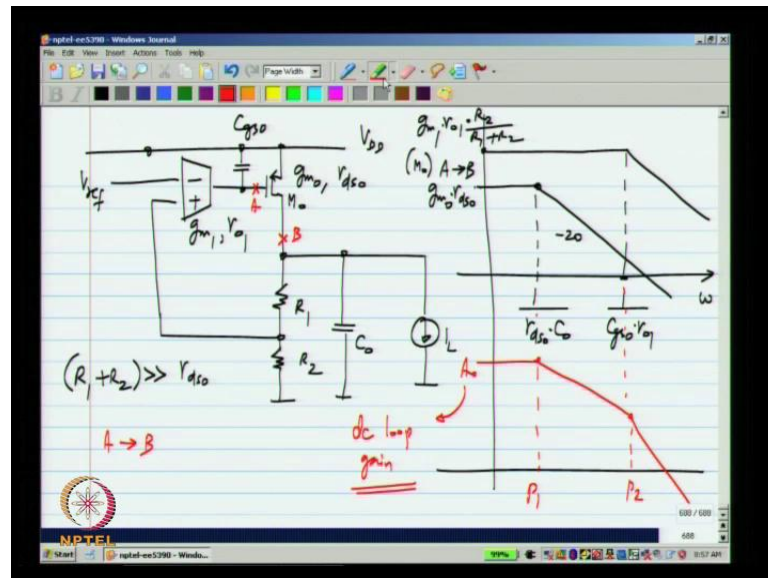 nptel-ee5390 - Windows Journal
File Edit View Insert Actions Tools Help
Page Width
B I
C_gs0
V_DD
V_ref
−
+
g_m1, r_01
A
g_m0, r_ds0
M_0
B
R_1
R_2
C_0
I_L
(R_1 + R_2) >> r_ds0
A → B
g_m1 · r_01 · R_2 / R_1 + R_2
(M_0) A → B
g_m0 · r_ds0
-20
ω
r_ds0 · C_0
C_gs0 · r_01
A_0
dc loop
gain
P_1
P_2
688 / 688
688
NPTEL
Start
nptel-ee5390 - Windo...
99%
8:57 AM